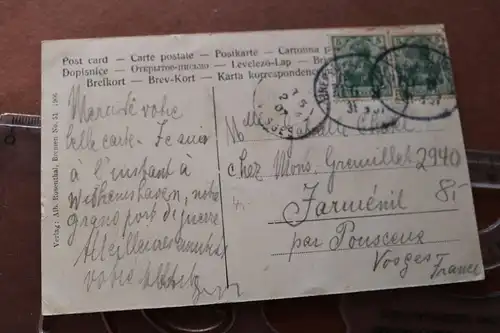 Post card — Carte postale — Postkarte — Cartonna p
Dopisnice — Открытое письмо — Levelező-Lap — Br
Brefkort — Brev-Kort — Karta korrespondenc
Verlag: Alb. Rosenthal, Bremen No. 51 1906
votre
belle carte. Je suis
à l'instant à
Wilhelmshaven, notre
grand port de guerre
Meilleures amitiés
votre
Mlle
chez Mons. Gremillet
2940
Jarménil
8.-
par Pouxeux
Vosges
France